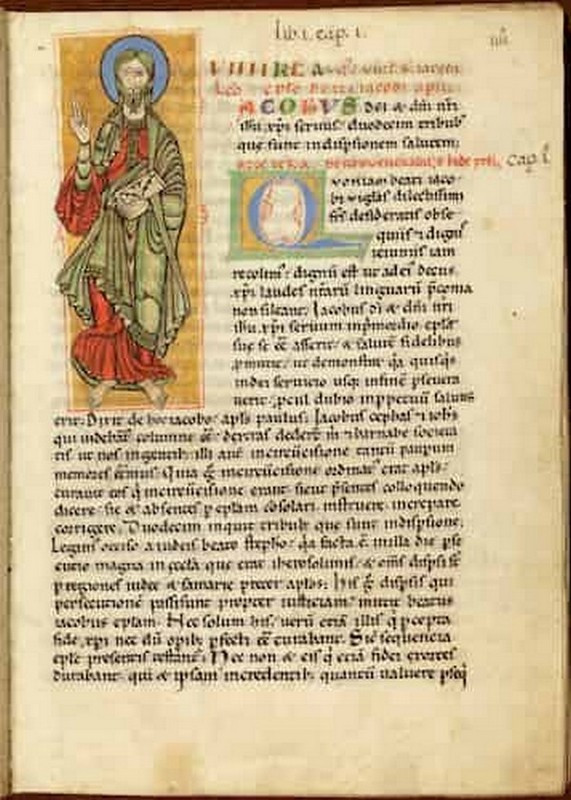 lib. i. cap. i.
iiii
IACOBUS dei & dn̄i nr̄i
ihu. xp̄i seruus duodecim tribub᷒
que sunt in dispsione salutem;
cap. i.
Q uoniam beati iaco
bi uigiliā dilectissimi
fr̄s desideratis obse
quiis & dignis
ieiuniis iam
recolim᷒. dignū est ut ad ei᷒ decus
xp̄i laudes nr̄arū linguarū p̄conia
non sileant. Iacobus di & dn̄i nr̄i
ihu. xp̄i seruum in p̄mordio epl̄e
sue se eē asserit. & salutē fidelibus
ut demonst̄ret̄ q̄a quisq̄s
in dei seruicio usq; in finē p̄seuera
uerit. pcul dubio inppetuū saluus
erit. Dixit de hoc iacobo. apl̄s paulus; Iacobus cephas & ioh̄s
qui uidebant̄ columne eē. dextras dederr̄t m̄ & barnabe societa
tis ut nos in gentib᷒. illi aut̄ in circūcisione tantū paupum
memores eēmus; Quia ḡ in circūcisione ordinat᷒ erat apl̄s.
curauit eos q̄ in circūcisione erant. sicut p̄sentes colloquendo
docere. sic & absentes p eplam cōsolari. instruere increpare
corrigere. Duodecim inquit tribub᷒ que sunt in dispsione.
Legim᷒ occiso a iudeis beato stepho. q̄a facta ē in illa die pse
cutio magna in ecclā que erat iherosolimis. & om̄s dispsi st̄
p regiones iudee & samarie preter apl̄os; His ḡ dispsis qui
persecutionē passi sunt propter iusticiam. mittit beatus
iacobus eplam. Nec solum his. uerū etiā illis q̄ pcepta
fide xp̄i nec dū opib᷒ pfecti eē curabant. Sic sequencia
epl̄e presentis testant̄. Nec non & eis q̄ etiā fidei exortes
durabant. qui & ipsam in credentib᷒ quantū ualuere pseq̄